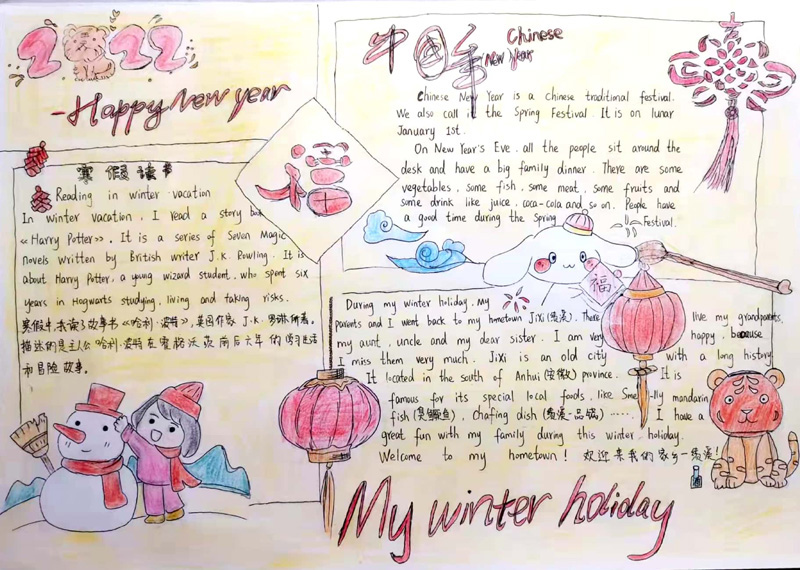 2022
-Happy New Year
寒假读书
Reading in winter vacation
In winter vacation, I read a story book
《Harry Potter》. It is a series of Seven Magic
novels written by British writer J.K. Rowling. It is
about Harry Potter, a young wizard student, who spent six
years in Hogwarts studying, living and taking risks.
寒假中,我读了故事书《哈利·波特》,英国作家 J.K.罗琳所着.
描述的是主人公哈利·波特在霍格沃茨前后六年的学习生活
和冒险故事。
福
中国年 Chinese
New Year
Chinese New Year is a chinese traditional festival.
We also call it the Spring Festival. It is on lunar
January 1st.
On New Year's Eve, all the people sit around the
desk and have a big family dinner. There are some
vegetables, some fish, some meat, some fruits and
some drink like juice, coca-cola and so on. People have
a good time during the Spring Festival.
福
During my winter holiday, my
parents and I went back to my hometown JiXi(绩溪). There live my grandparents,
my aunt, uncle and my dear sister. I am very happy, because
I miss them very much. JiXi is an old city with a long history.
It located in the south of Anhui(安徽) province. It is
famous for its special local foods, like Smelly mandarin
fish(臭鳜鱼), chafing dish(绩溪一品锅)...... I have a
great fun with my family during this winter holiday.
Welcome to my hometown! 欢迎来我们的家乡—绩溪!
My winter holiday